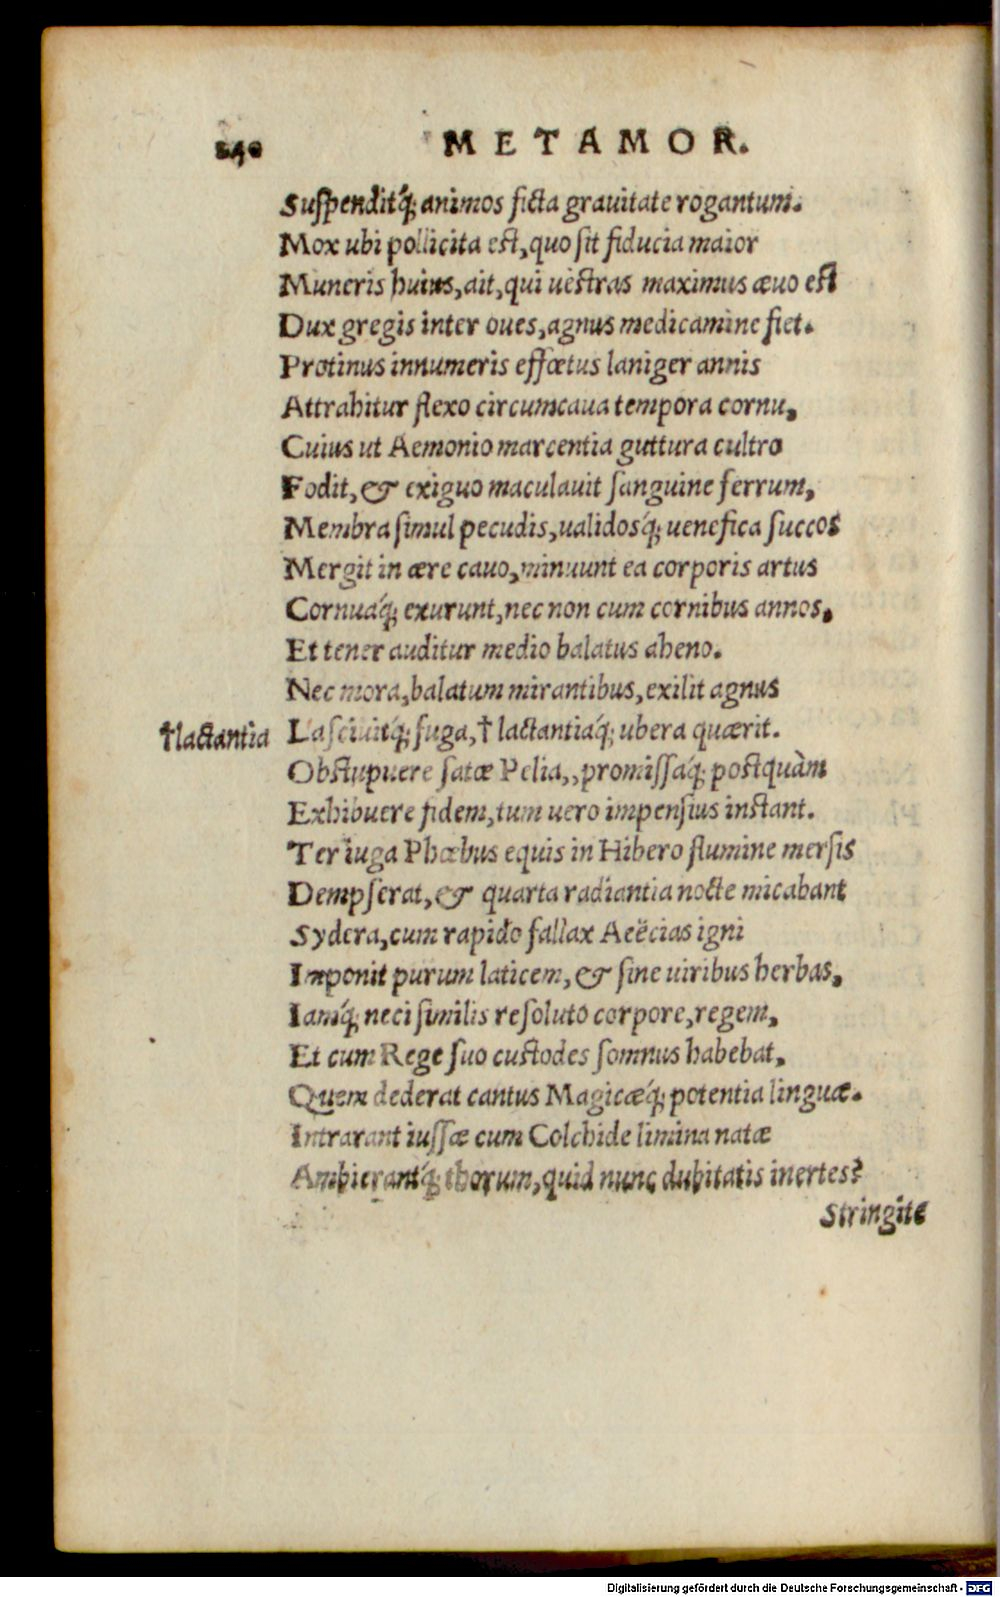 240 METAMOR.
Suspenditq́; animos ficta grauitate rogantum.
Mox ubi pollicita est, quo sit fiducia maior
Muneris huius, ait, qui uestras maximus æuo est
Dux gregis inter oues, agnus medicamine fiet.
Protinus innumeris effœtus laniger annis
Attrahitur flexo circumcaua tempora cornu,
Cuius ut Aemonio marcentia guttura cultro
Fodit, & exiguo maculauit sanguine ferrum,
Membra simul pecudis, ualidosq́; uenefica succos
Mergit in ære cauo, minuunt ea corporis artus
Cornuaq́; exurunt, nec non cum cornibus annos,
Et tener auditur medio balatus aheno.
Nec mora, balatum mirantibus, exilit agnus
†lactantia Lasciuitq́; fuga, † lactantiaq́; ubera quærit.
Obstupuere satæ Pelia,, promissaq́; postquàm
Exhibuere fidem, tum uero impensius instant.
Ter iuga Phœbus equis in Hibero flumine mersis
Dempserat, & quarta radiantia nocte micabant
Sydera, cum rapido fallax Aeëcias igni
Imponit purum laticem, & sine uiribus herbas,
Iamq́; neci similis resoluto corpore, regem,
Et cum Rege suo custodes somnus habebat,
Quem dederat cantus Magicæq́; potentia linguæ.
Intrarant iussæ cum Colchide limina natæ
Ambierantq́; thorum, quid nunc dubitatis inertes?
Stringite
Digitalisierung gefördert durch die Deutsche Forschungsgemeinschaft - DFG